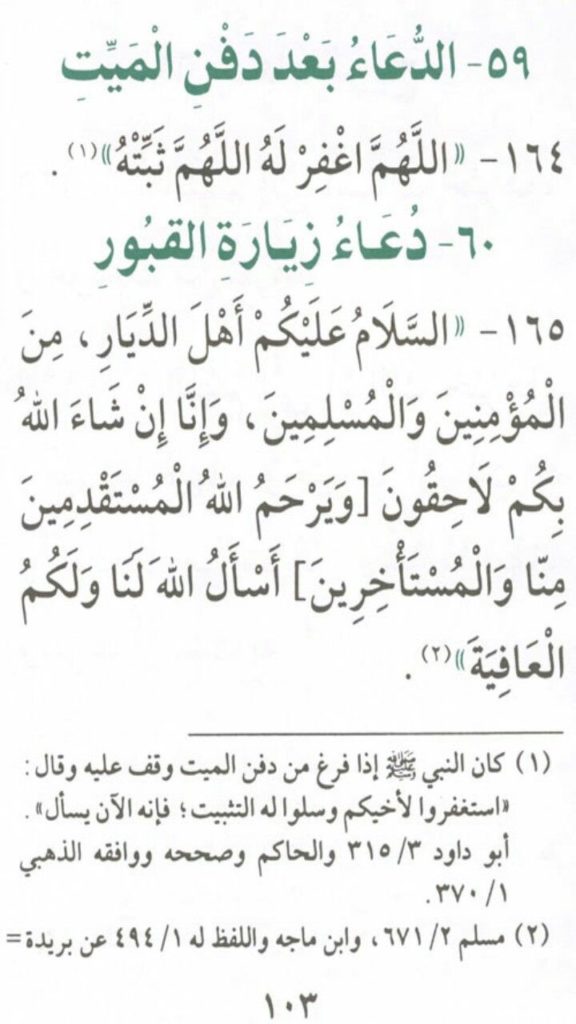 ٥٩- الدُّعَاءُ بَعْدَ دَفْنِ الْمَيِّتِ
١٦٤- «اللَّهُمَّ اغْفِرْ لَهُ اللَّهُمَّ ثَبِّتْهُ»(١).
٦٠- دُعَاءُ زِيَارَةِ القبُورِ
١٦٥- «السَّلَامُ عَلَيْكُمْ أَهْلَ الدِّيَارِ، مِنَ
الْمُؤْمِنِينَ وَالْمُسْلِمِينَ، وَإِنَّا إِنْ شَاءَ اللهُ
بِكُمْ لَاحِقُونَ [وَيَرْحَمُ اللهُ الْمُسْتَقْدِمِينَ
مِنّا وَالْمُسْتَأْخِرِينَ] أَسْأَلُ اللهَ لَنَا وَلَكُمُ
الْعَافِيَةَ»(٢).
(١) كان النبي ﷺ إذا فرغ من دفن الميت وقف عليه وقال:
«استغفروا لأخيكم وسلوا له التثبيت؛ فإنه الآن يسأل».
أبو داود ٣/ ٣١٥ والحاكم وصححه ووافقه الذهبي
١/ ٣٧٠.
(٢) مسلم ٢/ ٦٧١، وابن ماجه واللفظ له ١/ ٤٩٤ عن بريدة=
١٠٣